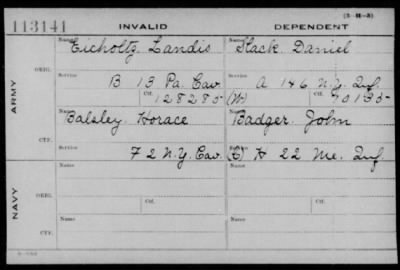 (3-H-3)
113141 INVALID DEPENDENT
Name Name
Eicholtz Landis Slack Daniel
ARMY
ORIG.
Service Service
B 13 Pa. Cav A 146 N.Y. Inf.
Ctf. Ctf.
128285 (M)
CTF.
Name Name
Balsley Horace Badger John
F 2 N.Y. Cav. (C) H 22 Me. Inf.
NAVY
ORIG.
Name Name
Service Ctf. Service Ctf.
CTF.
Name Name